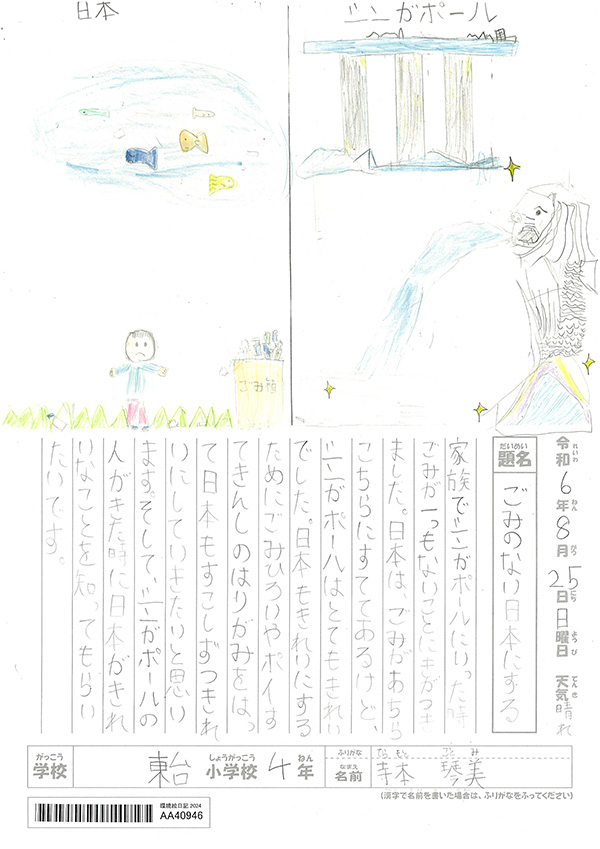 日本
シンガポール
ごみ箱
令和6年8月25日日曜日 天気晴れ
れいわ ねん がつ にち ようび てんき
だいめい
題名 ごみのない日本にする
家族でシンガポールにいった時
ごみが一つもないことにきがつき
ました。日本は、ごみがあちら
こちらにすててあるけど、
シンガポールはとてもきれい
でした。日本もきれいにする
ためにごみひろいやポイす
てきんしのはりがみをはっ
て日本もすこしずつきれ
いにしていきたいと思い
ます。そして、シンガポールの
人がきた時に日本がきれ
いなことを知ってもらい
たいです。
がっこう しょうがっこう ねん
学校 東台 小学校 4年
ふりがな てらもと ことみ
なまえ
名前 寺本 琴美
(漢字で名前を書いた場合は、ふりがなをふってください)
環境絵日記 2024
AA40946